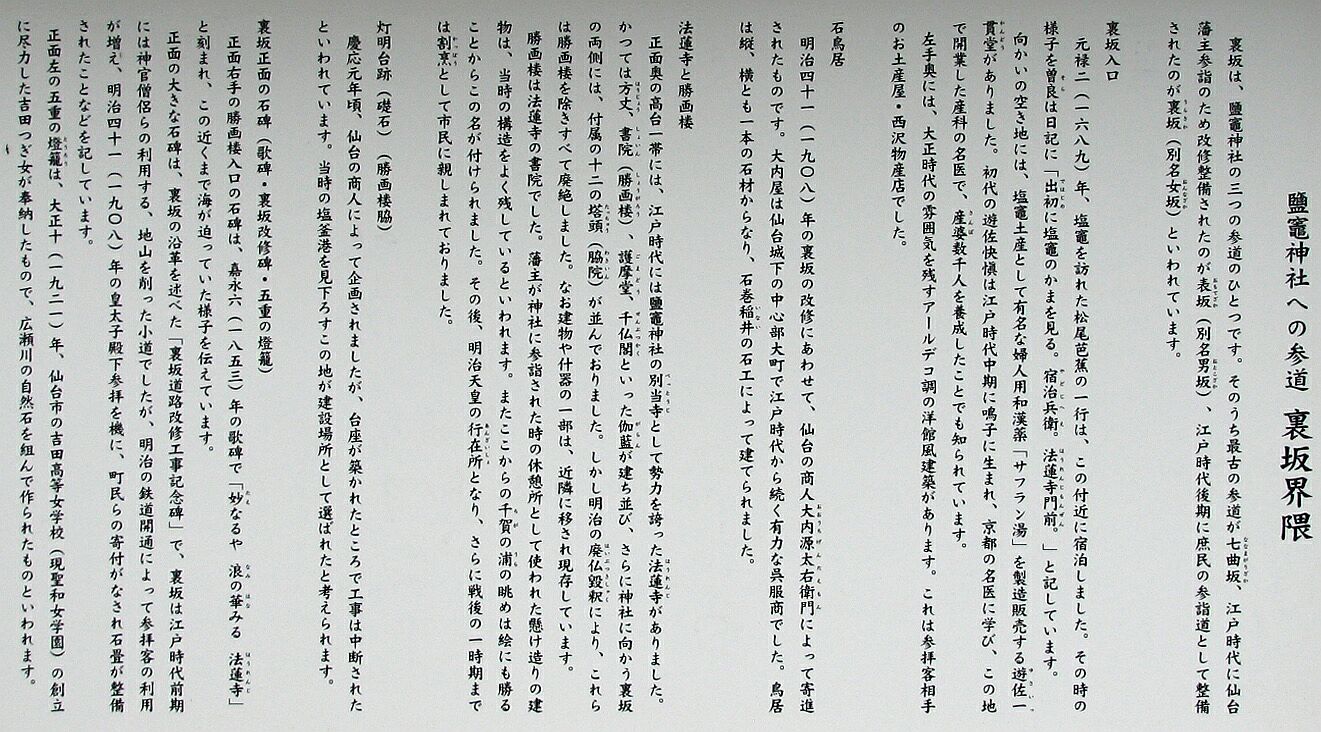 鹽竈神社への参道 裏坂界隈
裏坂は、鹽竈神社の三つの参道のひとつです。そのうち最古の参道が七曲坂、江戸時代に仙台
藩主参詣のため改修整備されたのが表坂（別名男坂）、江戸時代後期に庶民の参詣道として整備
されたのが裏坂（別名女坂）といわれています。
裏坂入口
元禄二（一六八九）年、塩竈を訪れた松尾芭蕉の一行は、この付近に宿泊しました。その時の
様子を曽良は日記に「出初に塩竈のかまを見る。宿治兵衛。法蓮寺門前。」と記しています。
向かいの空き地には、塩竈土産として有名な婦人用和漢薬「サフラン湯」を製造販売する遊佐一
貫堂がありました。初代の遊佐快慎は江戸時代中期に鳴子に生まれ、京都の名医に学び、この地
で開業した産科の名医で、産婆数千人を養成したことでも知られています。
左手奥には、大正時代の雰囲気を残すアールデコ調の洋館風建築があります。これは参拝客相手
のお土産屋・西沢物産店でした。
石鳥居
明治四十一（一九〇八）年の裏坂の改修にあわせて、仙台の商人大内源太右衛門によって寄進
されたものです。大内屋は仙台城下の中心部大町で江戸時代から続く有力な呉服商でした。鳥居
は縦、横とも一本の石材からなり、石巻稲井の石工によって建てられました。
法蓮寺と勝画楼
正面奥の高台一帯には、江戸時代には鹽竈神社の別当寺として勢力を誇った法蓮寺がありました。
かつては方丈、書院（勝画楼）、護摩堂、千仏閣といった伽藍が建ち並び、さらに神社に向かう裏坂
の両側には、付属の十二の塔頭（脇院）が並んでおりました。しかし明治の廃仏毀釈により、これら
は勝画楼を除きすべて廃絶しました。なお建物や什器の一部は、近隣に移され現存しています。
勝画楼は法蓮寺の書院でした。藩主が神社に参詣された時の休憩所として使われた懸け造りの建
物は、当時の構造をよく残しているといわれます。またここからの千賀の浦の眺めは絵にも勝る
ことからこの名が付けられました。その後、明治天皇の行在所となり、さらに戦後の一時期まで
は割烹として市民に親しまれておりました。
灯明台跡（礎石）（勝画楼脇）
慶応元年頃、仙台の商人によって企画されましたが、台座が築かれたところで工事は中断された
といわれています。当時の塩釜港を見下ろすこの地が建設場所として選ばれたと考えられます。
裏坂正面の石碑（歌碑・裏坂改修碑・五重の燈籠）
正面右手の勝画楼入口の石碑は、嘉永六（一八五三）年の歌碑で「妙なるや 浪の華みる 法蓮寺」
と刻まれ、この近くまで海が迫っていた様子を伝えています。
正面の大きな石碑は、裏坂の沿革を述べた「裏坂道路改修工事記念碑」で、裏坂は江戸時代前期
には神官僧侶らの利用する、地山を削った小道でしたが、明治の鉄道開通によって参拝客の利用
が増え、明治四十一（一九〇八）年の皇太子殿下参拝を機に、町民らの寄付がなされ石畳が整備
されたことなどを記しています。
正面左の五重の燈籠は、大正十（一九二一）年、仙台市の吉田高等女学校（現聖和女学園）の創立
に尽力した吉田つぎ女が奉納したもので、広瀬川の自然石を組んで作られたものといわれます。